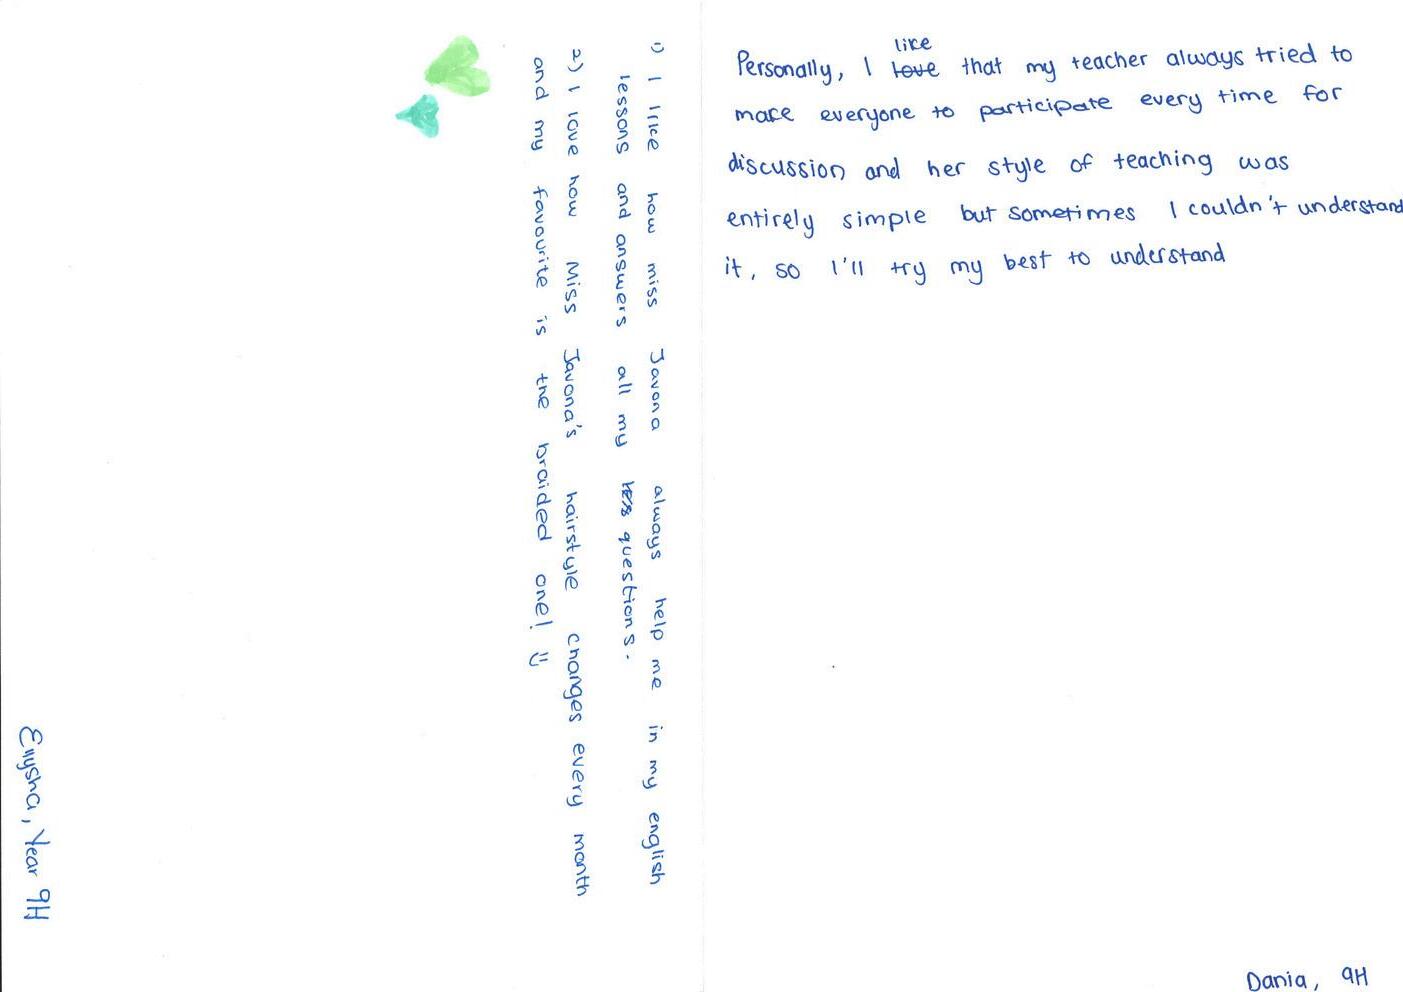 1) I like how miss Javona always help me in my english
lessons and answers all my less questions.
2) I love how Miss Javona's hairstyle changes every month
and my favourite is the braided one! :)
Ellysha, Year 9H
like
Personally, I love that my teacher always tried to
make everyone to participate every time for
discussion and her style of teaching was
entirely simple but sometimes I couldn't understand
it, so I'll try my best to understand
Dania, 9H